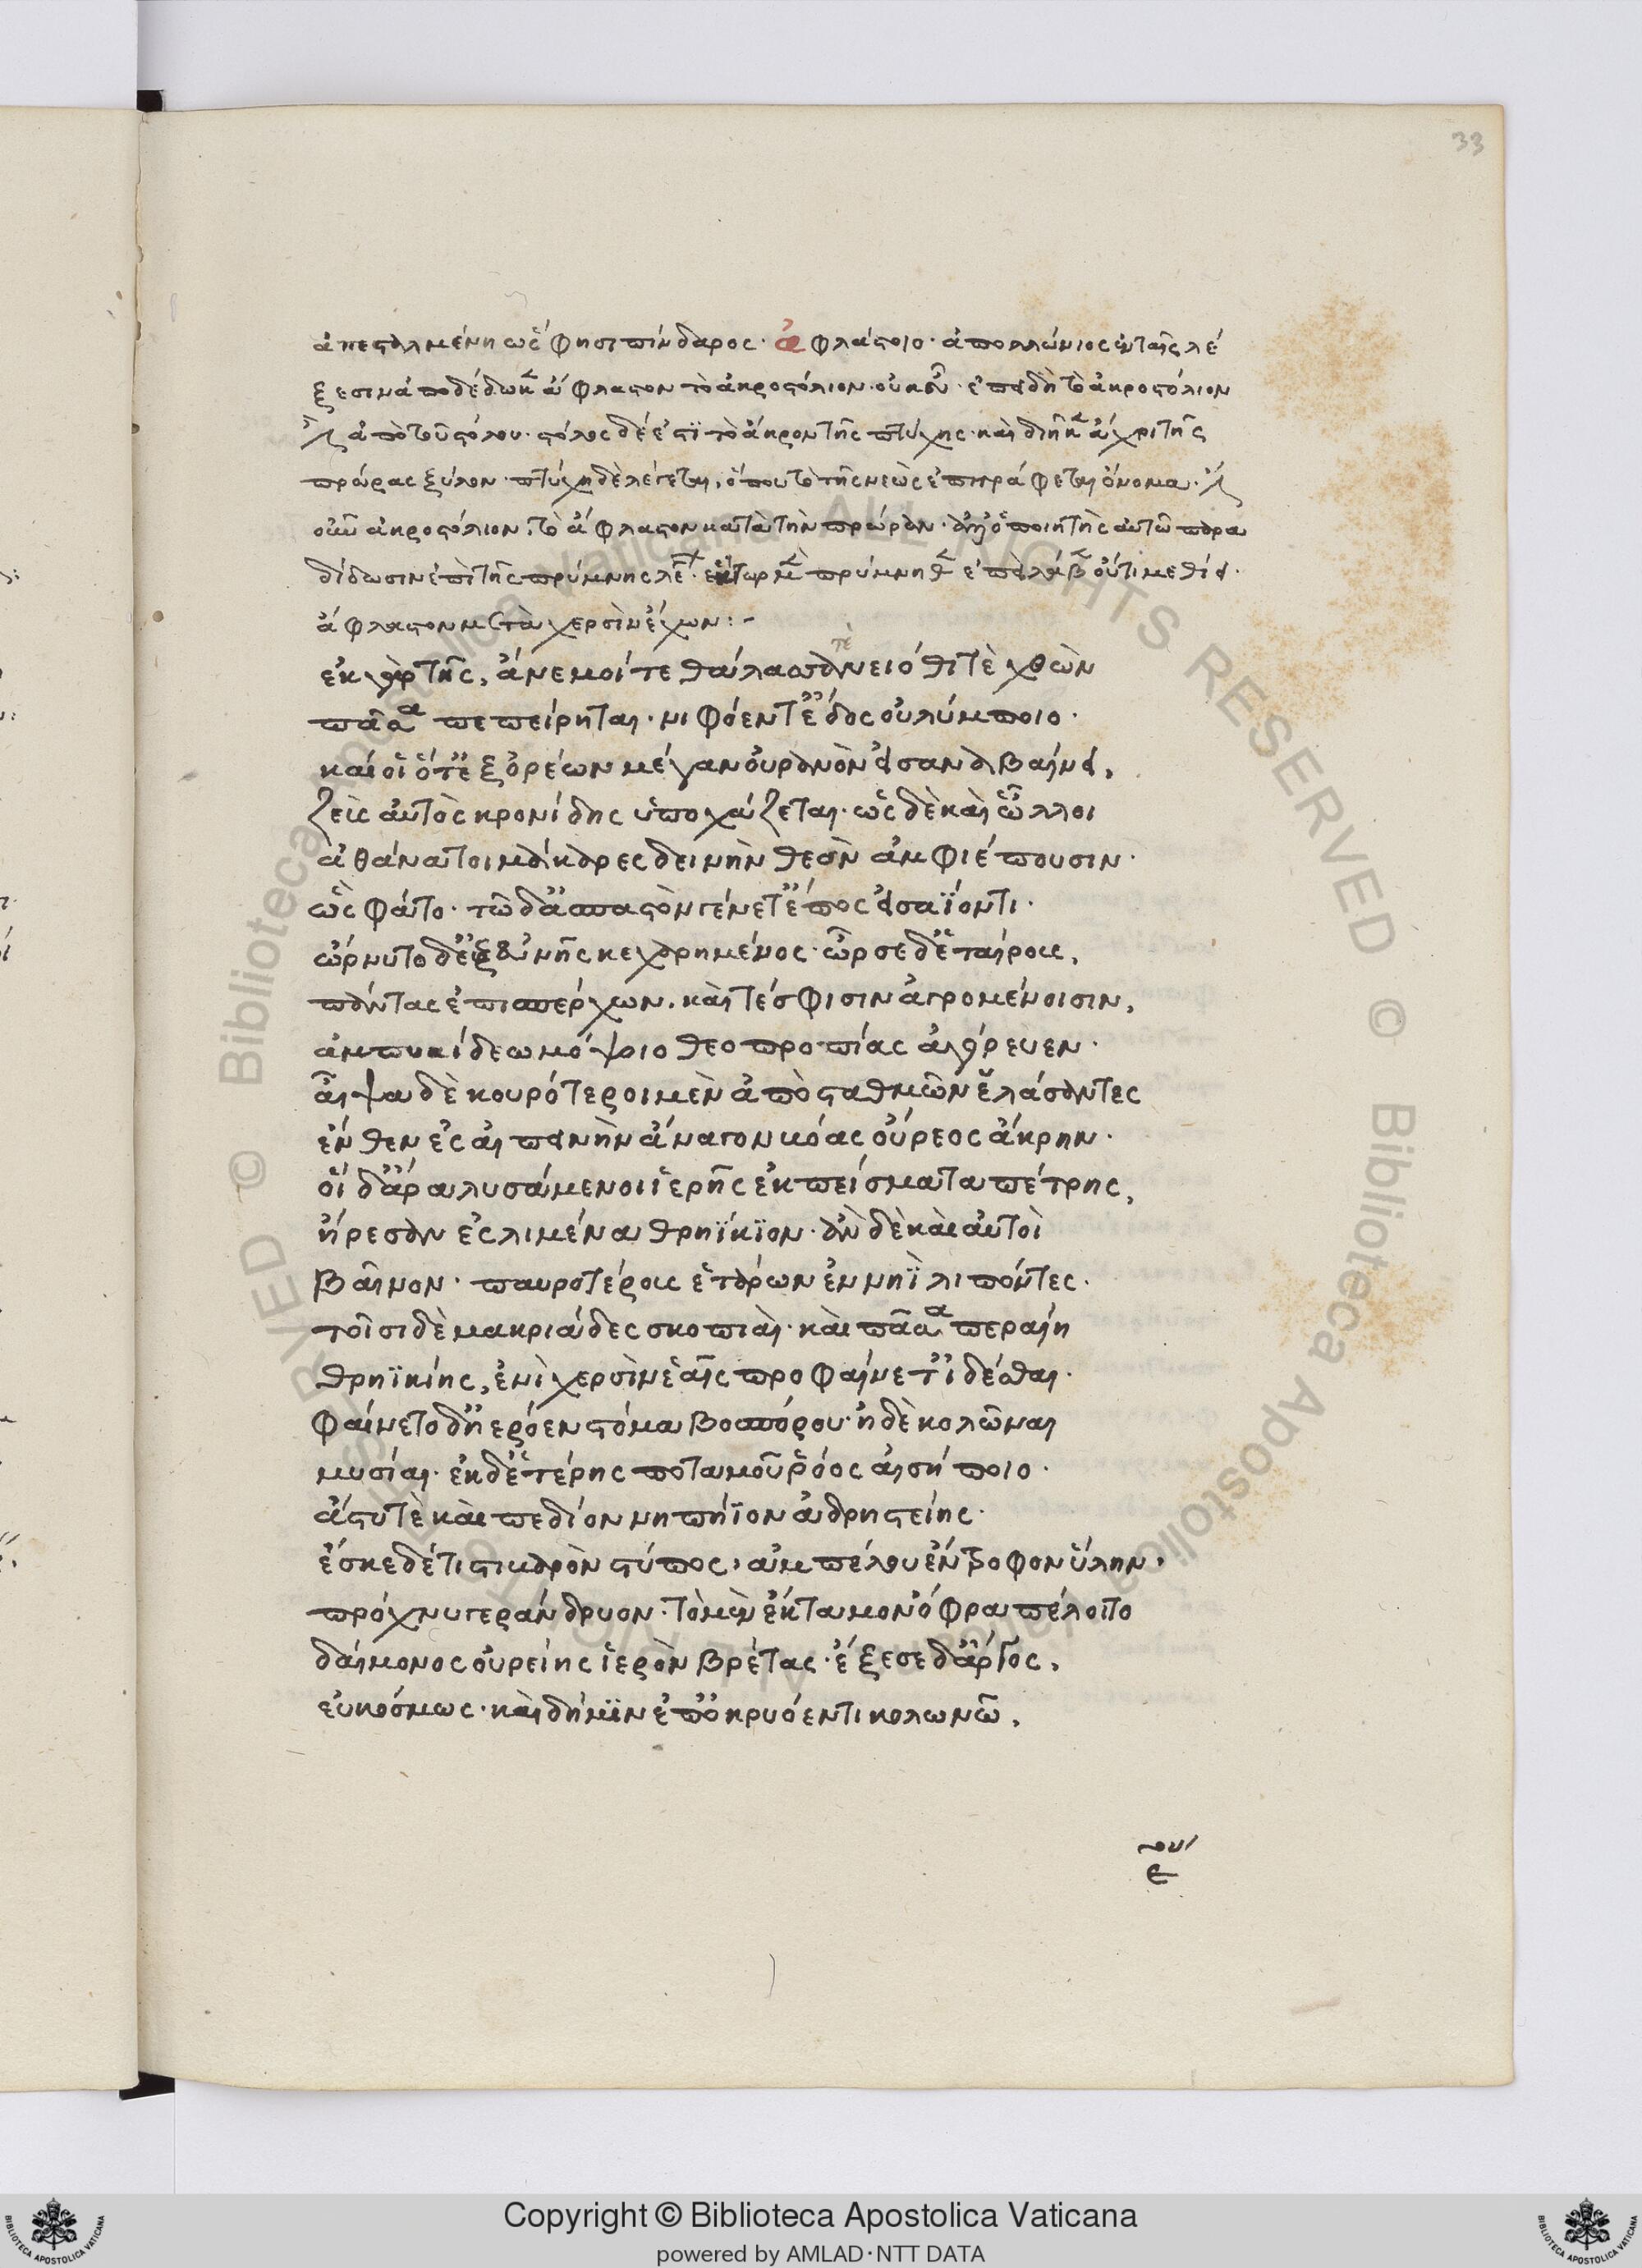 33
ἀπεσταλμένη ὥς φησι πίνδαρος· ἀφλάστοιο· ἀπολλώνιος ἐν ταῖς λέ
ξεσιν ἀποδέδωκ ἄφλαστον τὸ ἀκροστόλιον· οὐκ εὖ· ἐπειδὴ τὸ ἀκροστόλιον
ἀπὸ τοῦ στόλου· στόλος δέ ἐστι τὸ ἄκρον τῆς πτύχης· καὶ διῆκ ἄχρι τῆς
πρώρας ξύλον· πτύχη δὲ λέγεται, ὅπου τὸ τῆς νεὼς ἐπιγράφεται ὄνομα·
οὖν ἀκροστόλιον· τὸ ἄφλαστον κατὰ τὴν πρώραν· ὁ ποιητὴς αὐτῶ παρα
δίδωσιν ἐπὶ τῆς πρύμνης λέγ· ἕκτωρ πρύμνηθ ἐπεὶ λάβ οὔτι μεθίει·
ἄφλαστον μετὰ χερσὶν ἔχων:-
πὲ
ἐκ γὰρ τῆς, ἄνεμοί τε θάλασσαν νειόθι τὲ χθὼν
πᾶσα πεπείρηται· νιφόεν τ' ἕδος οὐλύμποιο·
καί οἱ ὅτ' ἐξ ὀρέων μέγαν οὐρανὸν εἰσαναβαίνει,
ζεὺς αὐτὸς κρονίδης ὑποχάζεται· ὣς δὲ καὶ ὧλλοι
ἀθάνατοι μάκαρες δεινὴν θεὸν ἀμφιέπουσιν·
ὣς φάτο· τῶ δ' ἀσπαστὸν γένετ' ἔπος εἰσαΐοντι·
ὤρνυτο δ' ἐξ εὐνῆς κεχαρημένος· ὦρσε δ' ἑταίρους,
πάντας ἐπισπέρχων, καὶ τέ σφισιν ἀγρομένοισιν,
ἀμπυκίδεω μόψοιο θεοπροπίας ἀγόρευεν·
αἶψα δὲ κουρότεροι μὲν ἀπὸ σταθμῶν ἐλάσαντες
ἔνθεν ἐς αἰπεινὴν ἄναγον κόας οὔρεος ἄκρην·
οἱ δ' ἄρα λυσάμενοι ἱερῆς ἐκ πείσματα πέτρης,
ἤρεσαν ἐς λιμένα θρηΐκιον· ἂν δὲ καὶ αὐτοὶ
βαῖνον· παυροτέρους ἑτάρων ἐν νηῒ λιπόντες·
τοῖσι δὲ μακριάδες σκοπιαὶ· καὶ πᾶσα περαίη
θρηϊκίης, ἐνὶ χερσὶν ἑαῖς προφαίνετ' ἰδέσθαι·
φαίνετο δ' ἠερόεν στόμα βοσπόρου· ἠδὲ κολῶναι
μυσίαι· ἐκ δ' ἑτέρης ποταμοῦ ῥόος αἰσήποιο·
ἄστυ τὲ καὶ πεδίον νηπήϊον ἀδρηστείης·
ἔσκε δέ τι στιβαρὸν στύπος, ἀμπέλου ἔντροφον ὕλην,
πρόχνυ γεράνδρυον· τὸ μὲν ἔκταμον ὄφρα πέλοιτο
δαίμονος οὐρείης ἱερὸν βρέτας· ἔξεσε δ' ἄργος,
εὐκόσμως· καὶ δή μιν ἐπ' ὀκρυόεντι κολωνῶ,
Copyright © Biblioteca Apostolica Vaticana
powered by AMLAD·NTT DATA